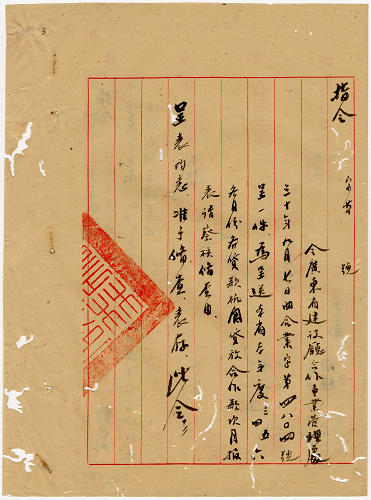 指令
字第 號
令廣東省建設廳合作事業管理處
三十年 月七日曲合業字第四八〇四號
呈一件爲呈送本省本年度三四五六
各月份各貸款机関貸放合作款次月報
表請察核備查由
呈表均悉准予備查表存此令